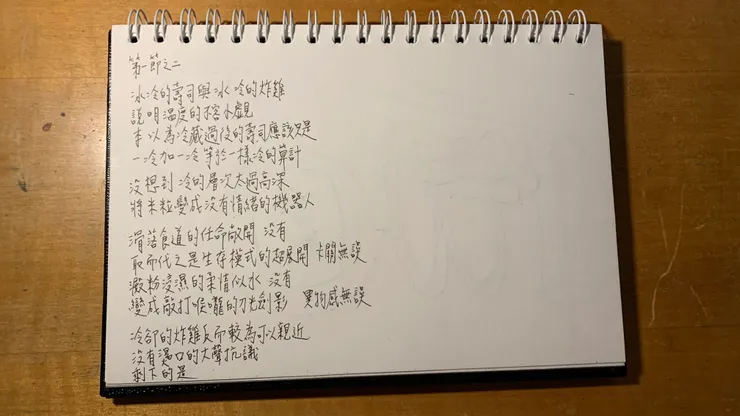 第一節之二
冰冷的壽司與冰冷的炸雞
說明溫度的不容小覷
本以為冷藏過後的壽司應該只是
一冷加一冷等於一樣冷的算計
沒想到 冷的層次太過高深
將米粒變成沒有情緒的機器人
滑落食道的任命敞開 沒有
取而代之是生存模式的超展開 卡關無誤
澱粉浸濕的柔情似水 沒有
變成敲打喉嚨的刀光劍影 異物感無誤
冷卻的炸雞反而較為可以親近
沒有燙口的大聲抗議
剩下的是